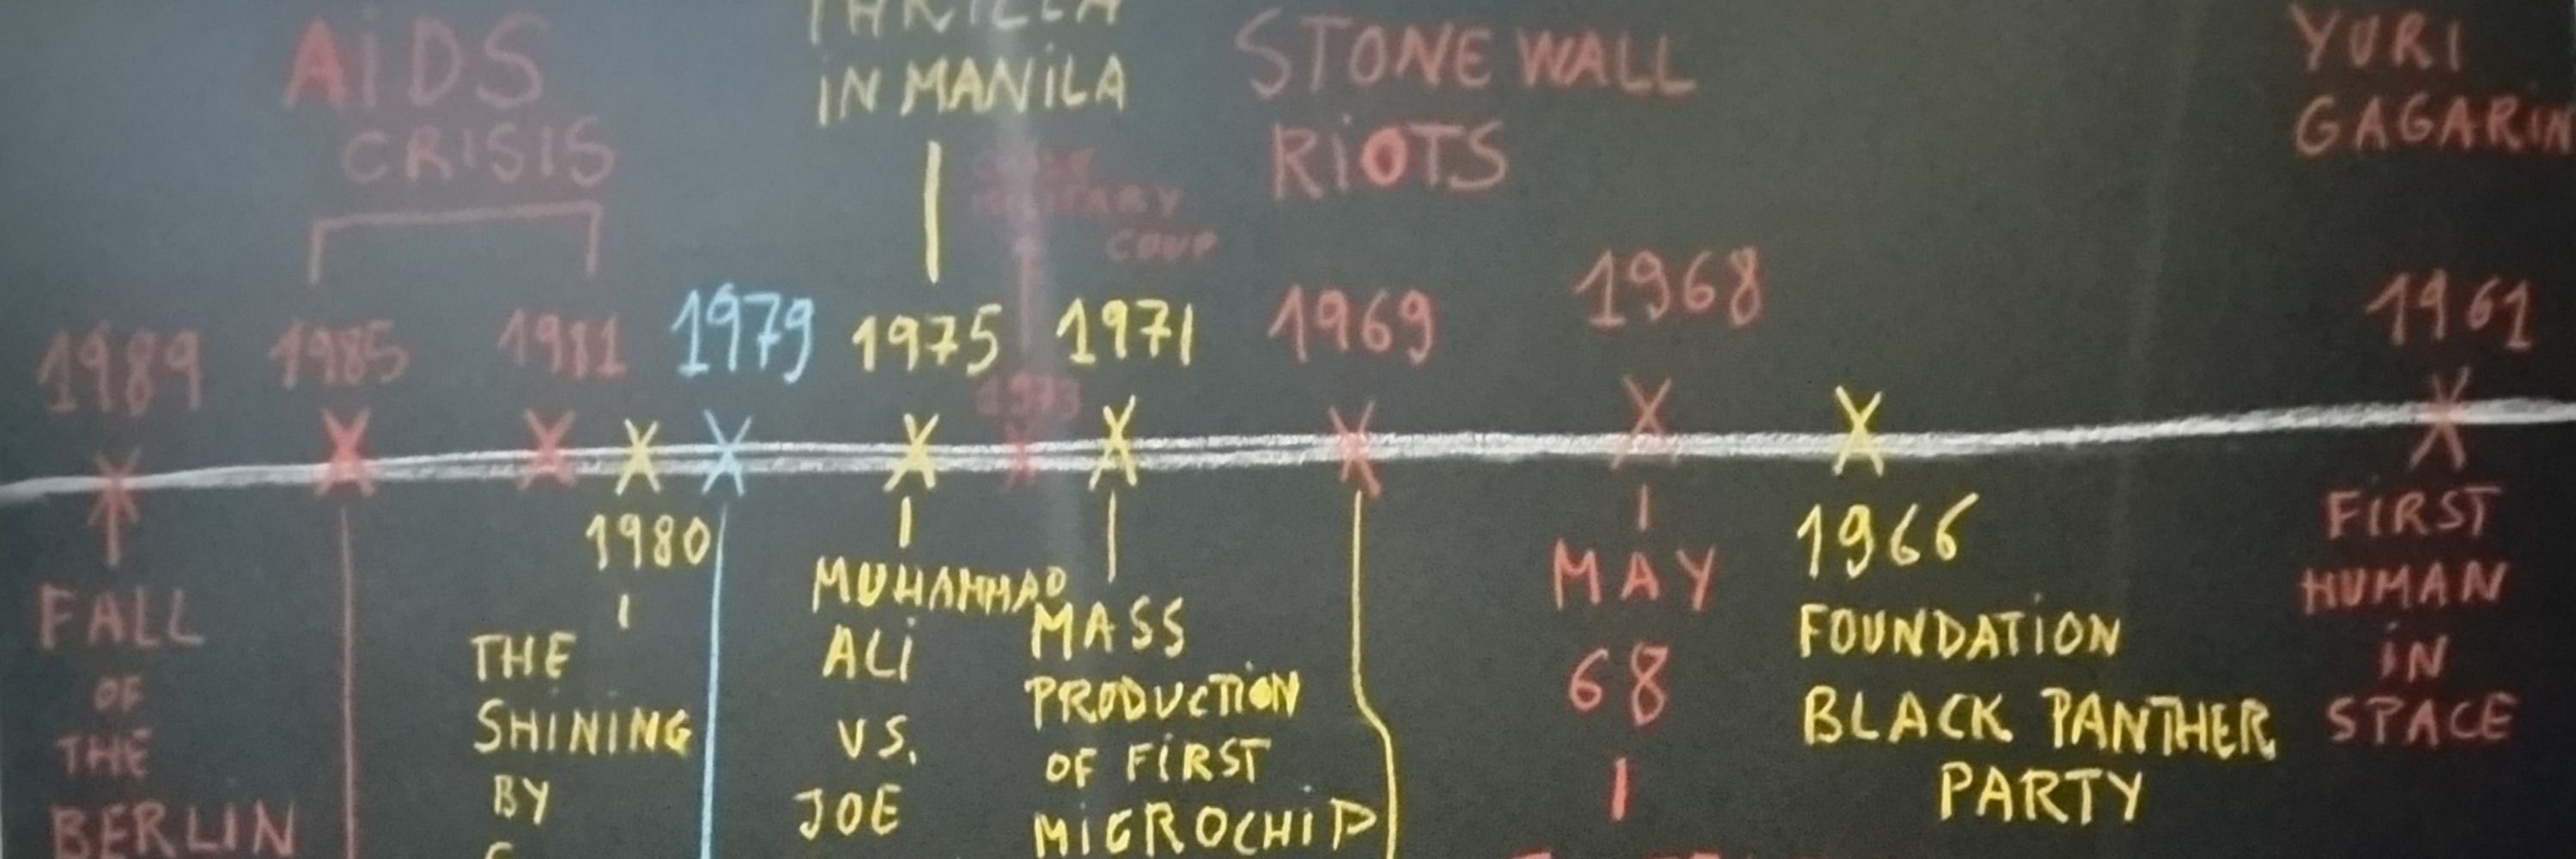 AiDS
CRISIS
1989
1985
1981
FALL
OF
THE
BERLIN
1980
THE
SHINING
BY
1979
THRILLA
iN MANiLA
1975
MUHAMMAD
ALi
VS.
JOE
COUP
1973
1971
MASS
PRODUCTiON
OF FiRST
MiCROCHiP
STONE WALL
RiOTS
1969
1968
MAY
68
1966
FOUNDATiON
BLACK PANTHER
PARTY
YURI
GAGARIN
1961
FiRST
HUMAN
iN
SPACE